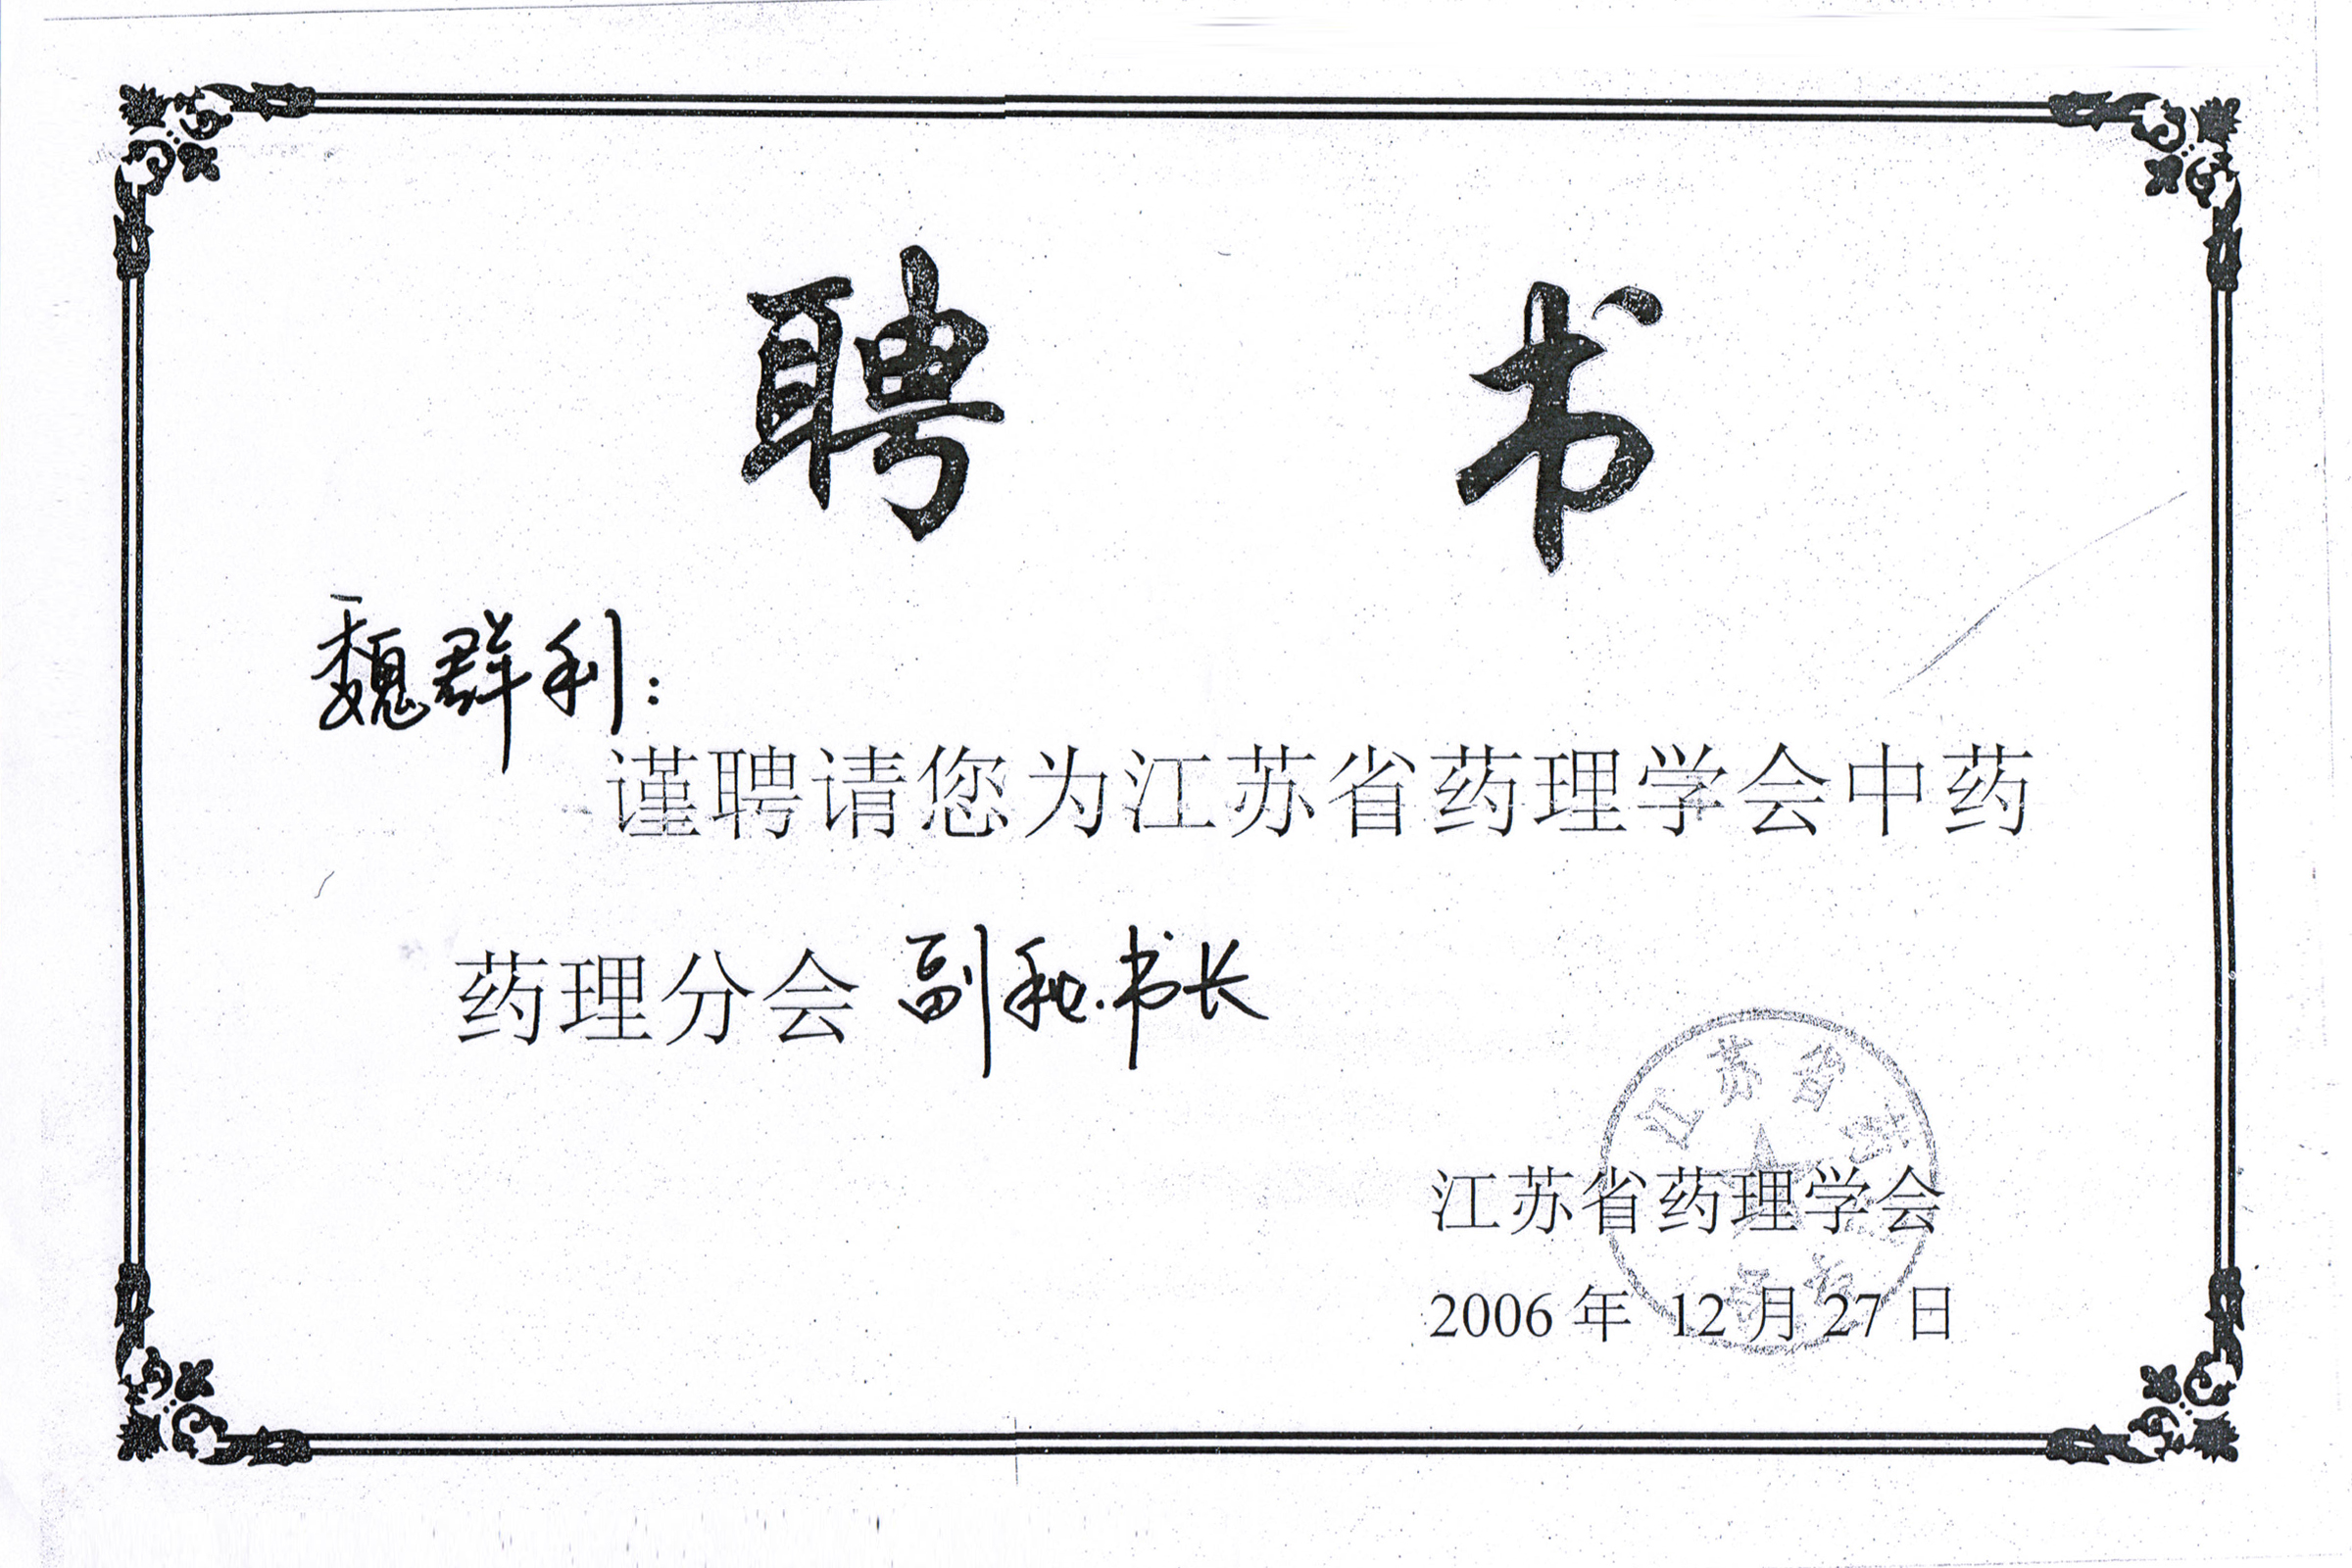 聘 书
魏群利:
谨聘请您为江苏省药理学会中药
药理分会副秘书长
江苏省
江苏省药理学会
2006 年 12 月 27 日